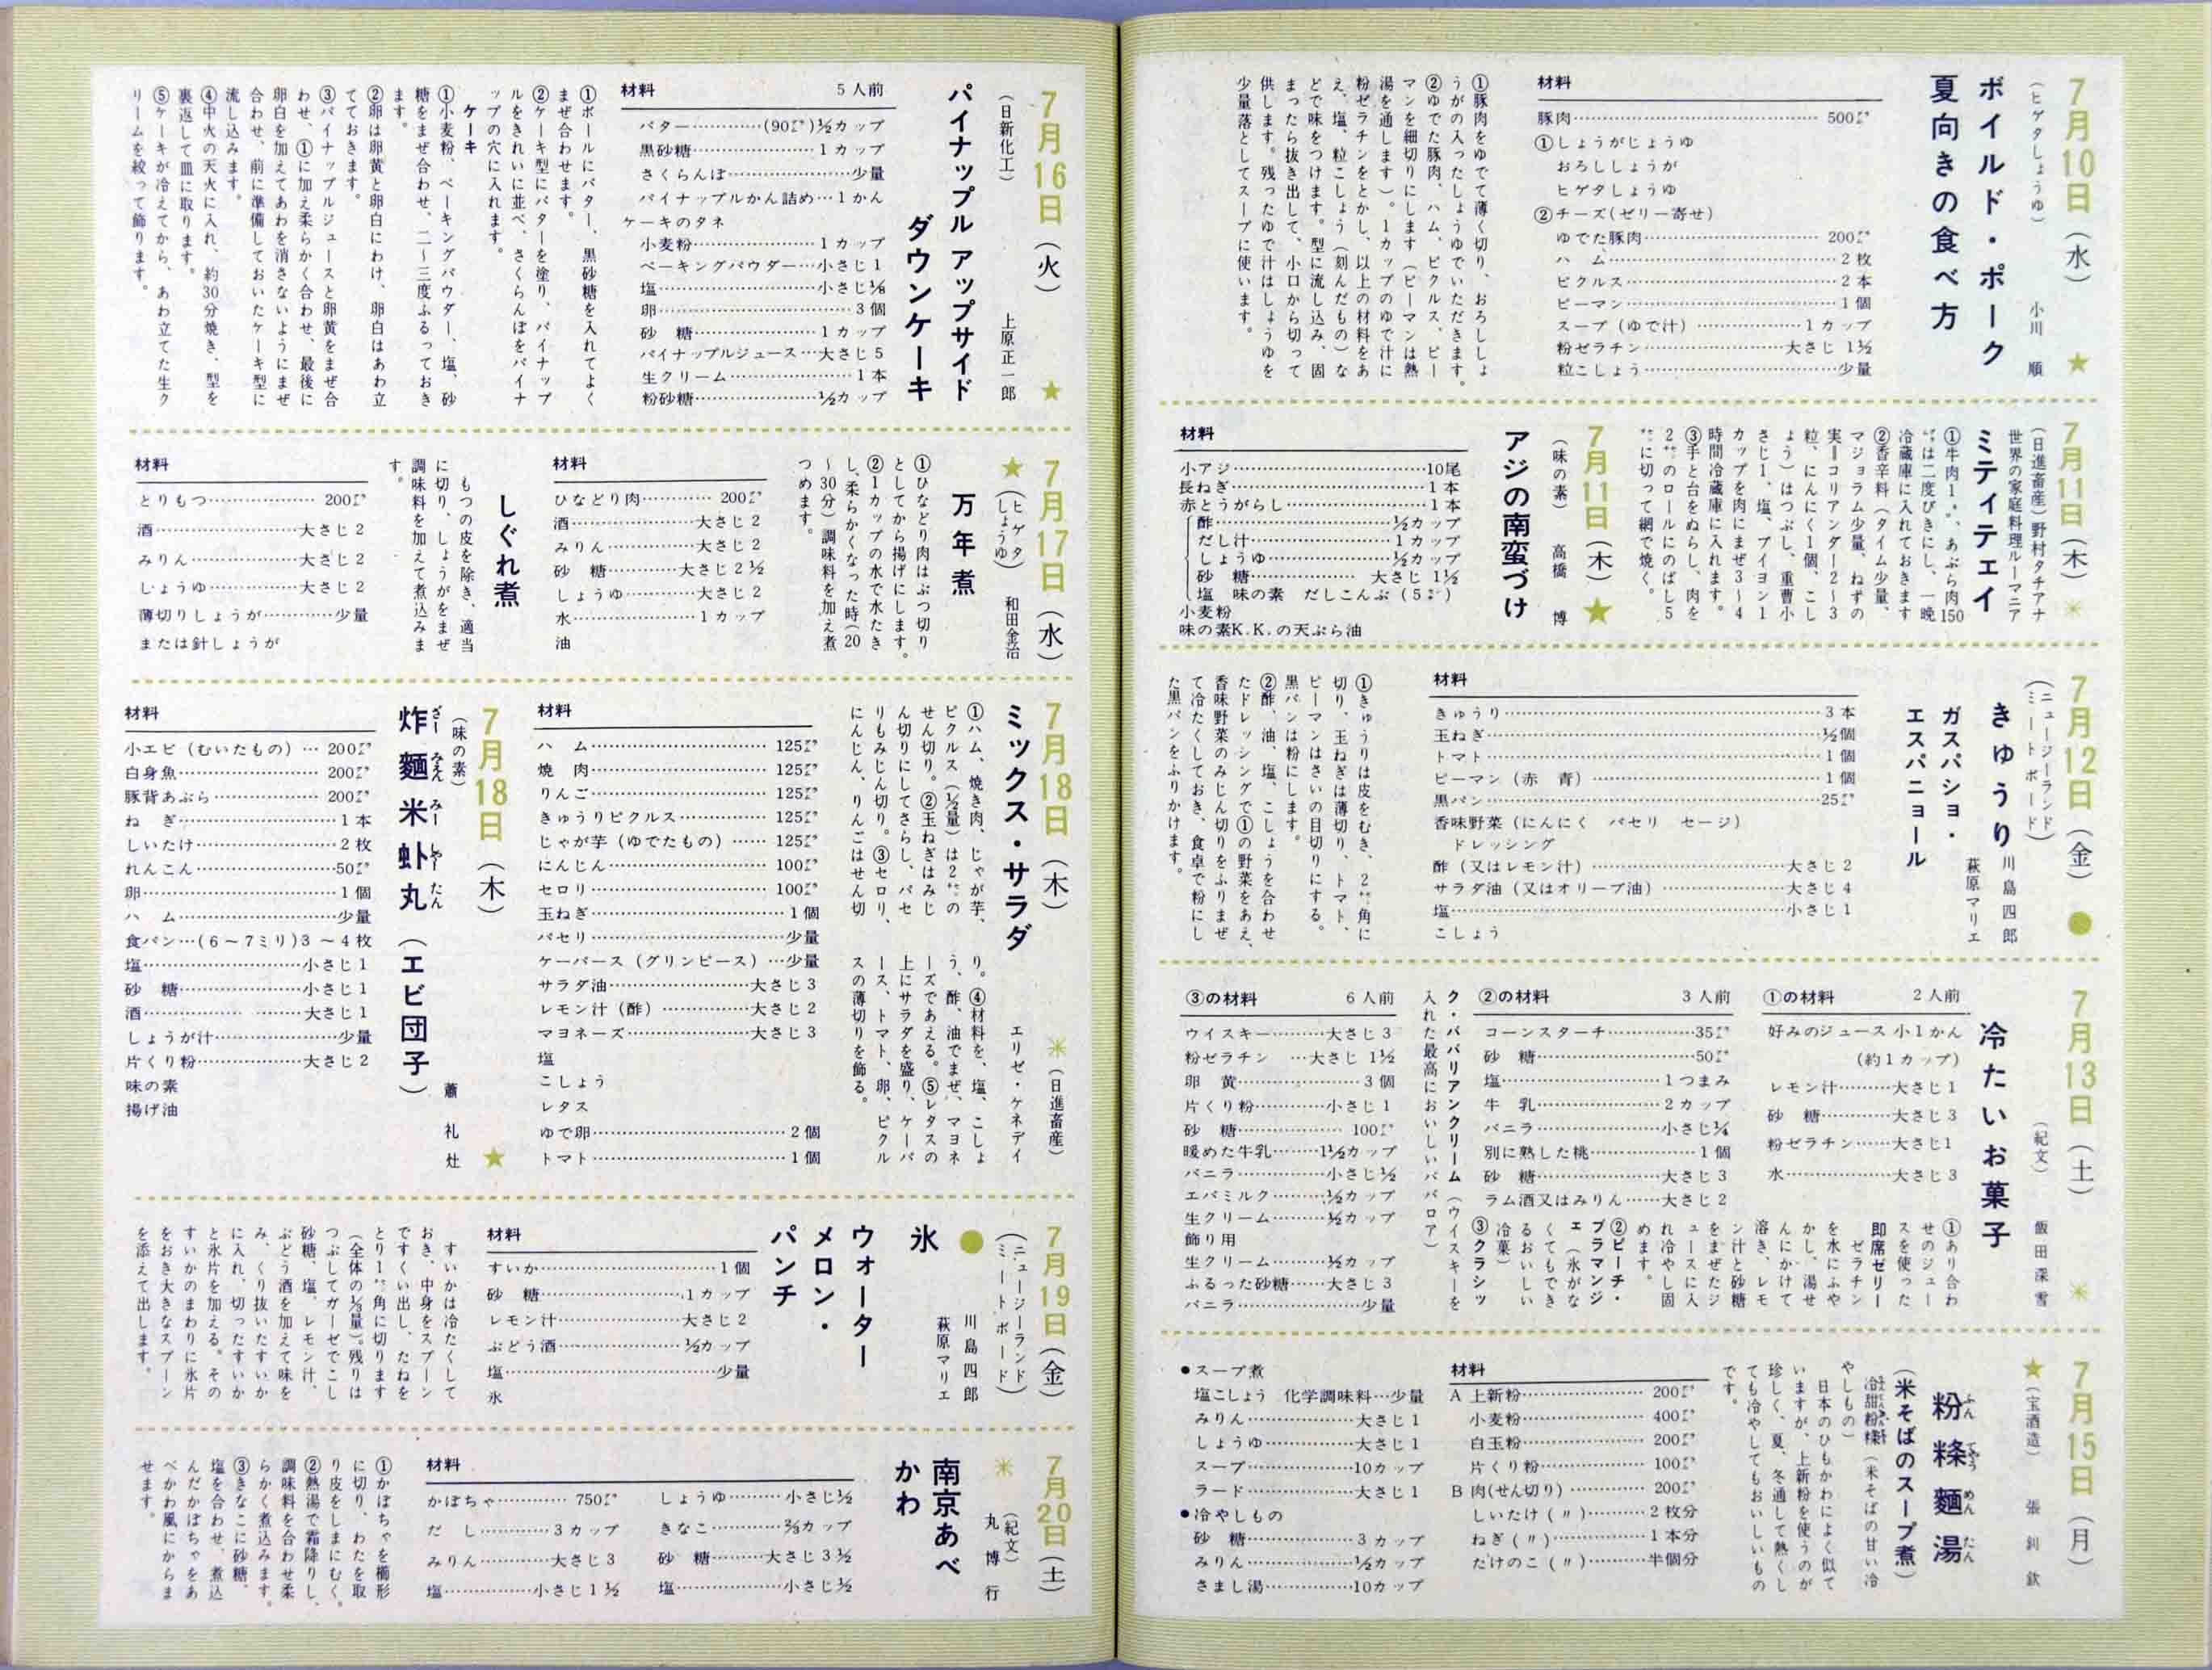 7月10日(水)
(ヒゲタしょうゆ) 小川 順 ★
ボイルド・ポーク
夏向きの食べ方
材料
豚肉…500㌘
①しょうがじょうゆ
おろししょうが
ヒゲタしょうゆ
②チーズ(ゼリー寄せ)
ゆでた豚肉…200㌘
ハ ム…2枚
ピクルス…2本
ピーマン…1個
スープ(ゆで汁)…1カップ
粉ゼラチン…大さじ 1½
粒こしょう…少量
①豚肉をゆでて薄く切り、おろししょ
うがの入ったしょうゆでいただきます。
②ゆでた豚肉、ハム、ピクルス、ピー
マンを細切りにします(ピーマンは熱
湯を通します)。1カップのゆで汁に
粉ゼラチンをとかし、以上の材料をあ
え、塩、粒こしょう(刻んだもの)な
どで味をつけます。型に流し込み、固
まったら抜き出して、小口から切って
供します。残ったゆで汁はしょうゆを
少量落としてスープに使います。
7月11日(木)
(日進畜産)野村タチアナ
世界の家庭料理ルーマニア
ミティテェイ
①牛肉1㌔、あぶら肉150
㌘は二度びきにし、一晩
冷蔵庫に入れておきます
②香辛料(タイム少量、
マジョラム少量、ねずの
実=コリアンダー2〜3
粒、にんにく1個、こし
ょう)はつぶし、重曹小
さじ1、塩、ブイヨン1
カップを肉にまぜ3〜4
時間冷蔵庫に入れます。
③手と台をぬらし、肉を
2㌢のロールにのばし5
㌢に切って網で焼く。
7月11日(木)★
(味の素) 高橋 博
アジの南蛮づけ
材料
小アジ…10尾
長ねぎ…1本
赤とうがらし…1本
酢…½カップ
だし汁…1カップ
しょうゆ…½カップ
砂 糖…大さじ 1½
塩 味の素 だしこんぶ(5㌢)
小麦粉
味の素K.K.の天ぷら油
7月12日(金)●
(ニュージーランド
ミートボード)
川島四郎
萩原マリエ
きゅうり
ガスパショ・
エスパニョール
材料
きゅうり…3本
玉ねぎ…½個
トマト…1個
ピーマン(赤 青)…1個
黒パン…25㌘
香味野菜(にんにく パセリ セージ)
ドレッシング
酢(又はレモン汁)…大さじ2
サラダ油(又はオリーブ油)…大さじ4
塩…小さじ1
こしょう
①きゅうりは皮をむき、2㌢角に
切り、玉ねぎは薄切り、トマト、
ピーマンはさいの目切りにする。
黒パンは粉にします。
②酢、油、塩、こしょうを合わせ
たドレッシングで①の野菜をあえ、
香味野菜のみじん切りをふりまぜ
て冷たくしておき、食卓で粉にし
た黒パンをふりかけます。
7月13日(土)
(紀文) 飯田深雪
冷たいお菓子
①の材料 2人前
好みのジュース 小1かん
(約1カップ)
レモン汁…大さじ1
砂 糖…大さじ3
粉ゼラチン…大さじ1
水…大さじ3
②の材料 3人前
コーンスターチ…35㌘
砂 糖…50㌘
塩…1つまみ
牛 乳…2カップ
バニラ…小さじ¼
別に熟した桃…1個
砂 糖…大さじ3
ラム酒又はみりん…大さじ2
①あり合わ
せのジュー
スを使った
即席ゼリー
ゼラチン
を水にふや
かし、湯せ
んにかけて
溶き、レモ
ン汁と砂糖
をまぜたジ
ュースに入
れ冷やし固
めます。
②ピーチ・
ブラマンジ
ェ(氷がな
くてもでき
るおいしい
冷菓)
③クラシッ
ク・ババリアンクリーム(ウイスキーを
入れた最高においしいババロア)
③の材料 6人前
ウイスキー…大さじ3
粉ゼラチン…大さじ 1½
卵 黄…3個
片くり粉…小さじ1
砂 糖…100㌘
暖めた牛乳…1½カップ
バニラ…小さじ½
エバミルク…½カップ
生クリーム…½カップ
飾り用
生クリーム…½カップ
ふるった砂糖…大さじ3
バニラ…少量
7月15日(月)
★(宝酒造) 張 釗 欽
粉粸麵湯
ふん めん たん
(米そばのスープ煮)
冷甜粉粸(米そばの甘い冷
やしもの)
日本のひもかわによく似て
いますが、上新粉を使うのが
珍しく、夏、冬通して熱くし
ても冷やしてもおいしいもの
です。
材料
A 上新粉…200㌘
小麦粉…400㌘
白玉粉…200㌘
片くり粉…100㌘
B 肉(せん切り)…200㌘
しいたけ(〃)…2枚分
ねぎ(〃)…1本分
たけのこ(〃)…半個分
●スープ煮
塩こしょう 化学調味料…少量
みりん…大さじ1
しょうゆ…大さじ1
スープ…10カップ
ラード…大さじ1
●冷やしもの
砂 糖…3カップ
みりん…½カップ
さまし湯…10カップ
7月16日(火)★
(日新化工) 上原正一郎
パイナップル アップサイド
ダウンケーキ
材料 5人前
バター…(90㌘)½カップ
黒砂糖…1カップ
さくらんぼ…少量
パイナップルかん詰め…1かん
ケーキのタネ
小麦粉…1カップ
ベーキングパウダー…小さじ1
塩…小さじ⅛
卵…3個
砂 糖…1カップ
パイナップルジュース…大さじ5
生クリーム…1本
粉砂糖…½カップ
①ボールにバター、黒砂糖を入れてよく
まぜ合わせます。
②ケーキ型にバターを塗り、パイナップ
ルをきれいに並べ、さくらんぼをパイナ
ップの穴に入れます。
ケーキ
①小麦粉、ベーキングパウダー、塩、砂
糖をまぜ合わせ、二〜三度ふるっておき
ます。
②卵は卵黄と卵白にわけ、卵白はあわ立
てておきます。
③パイナップルジュースと卵黄をまぜ合
わせ、①に加え柔らかく合わせ、最後に
卵白を加えてあわを消さないようにまぜ
合わせ、前に準備しておいたケーキ型に
流し込みます。
④中火の天火に入れ、約30分焼き、型を
裏返して皿に取ります。
⑤ケーキが冷えてから、あわ立てた生ク
リームを絞って飾ります。
7月17日(水)
★(ヒゲタ
しょうゆ) 和田金治
万年煮
①ひなどり肉はぶつ切り
としてから揚げにします。
②1カップの水で水たき
し、柔らかくなった時(20
〜30分)調味料を加え煮
つめます。
材料
ひなどり肉…200㌘
酒…大さじ2
みりん…大さじ2
砂 糖…大さじ2½
しょうゆ…大さじ2
水…1カップ
油
しぐれ煮
もつの皮を除き、適当
に切り、しょうがをまぜ
調味料を加えて煮込みま
す。
材料
とりもつ…200㌘
酒…大さじ2
みりん…大さじ2
しょうゆ…大さじ2
薄切りしょうが…少量
または針しょうが
7月18日(木)
(日進畜産)
エリゼ・ケネディ
ミックス・サラダ
①ハム、焼き肉、じゃが芋、
ピクルス(½量)は2㌢の
せん切り。②玉ねぎはみじ
ん切りにしてさらし、パセ
りもみじん切り。③セロリ、
にんじん、りんごはせん切
り。④材料を、塩、こしょ
う、酢、油でまぜ、マヨネ
ーズであえる。⑤レタスの
上にサラダを盛り、ケーパ
ース、トマト、卵、ピクル
スの薄切りを飾る。
材料
ハ ム…125㌘
焼 肉…125㌘
りんご…125㌘
きゅうりピクルス…125㌘
じゃが芋(ゆでたもの)…125㌘
にんじん…100㌘
セロリ…100㌘
玉ねぎ…1個
パセリ…少量
ケーパース(グリンピース)…少量
サラダ油…大さじ3
レモン汁(酢)…大さじ2
マヨネーズ…大さじ3
塩
こしょう
レタス
ゆで卵…2個
トマト…1個
7月18日(木)★
(味の素) 蕭 礼 灶
炸麵米虾丸(エビ団子)
ざー みえん みー しゃー たん
材料
小エビ(むいたもの)…200㌘
白身魚…200㌘
豚背あぶら…200㌘
ね ぎ…1本
しいたけ…2枚
れんこん…50㌘
卵…1個
ハ ム…少量
食パン…(6〜7ミリ)3〜4枚
塩…小さじ1
砂 糖…小さじ1
酒…大さじ1
しょうが汁…少量
片くり粉…大さじ2
味の素
揚げ油
7月19日(金)
(ニュージーランド
ミートボード)
川島四郎
萩原マリエ
●
氷
ウォーター
メロン・
パンチ
材料
すいか…1個
砂 糖…1カップ
レモン汁…大さじ2
ぶどう酒…½カップ
塩…少量
氷
すいかは冷たくして
おき、中身をスプーン
ですくい出し、たねを
とり1㌢角に切ります
(全体の⅓量)。残りは
つぶしてガーゼでこし
砂糖、塩、レモン汁、
ぶどう酒を加えて味を
み、くり抜いたすいか
に入れ、切ったすいか
と氷片を加える。その
すいかのまわりに氷片
をおき大きなスプーン
を添えて出します。
7月20日(土)
(紀文)
丸 博 行
南京あべ
かわ
材料
かぼちゃ…750㌘
だ し…3カップ
みりん…大さじ3
塩…小さじ1½
しょうゆ…小さじ½
きなこ…⅔カップ
砂 糖…大さじ3½
塩…小さじ½
①かぼちゃを櫛形
に切り、わたを取
り皮をしまにむく。
②熱湯で霜降りし、
調味料を合わせ柔
らかく煮込みます。
③きなこに砂糖、
塩を合わせ、煮込
んだかぼちゃをあ
べかわ風にからま
せます。